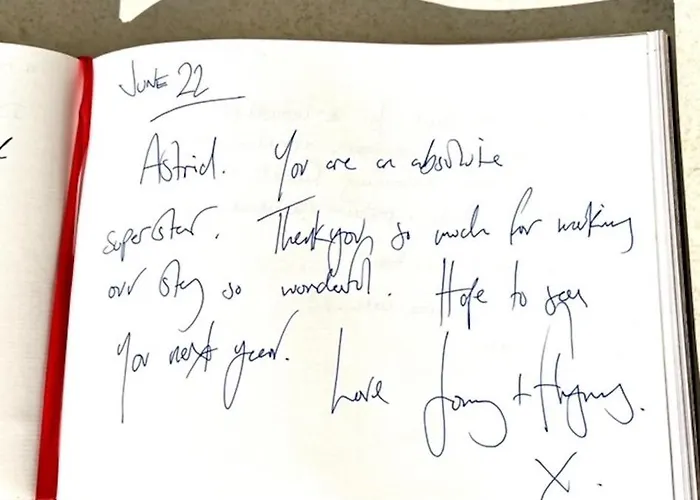 June 22
Astrid. You are an absolute
superstar. Thankyou so much for making
our stay so wonderful. Hope to see
you next year. Love Jonny +
X.